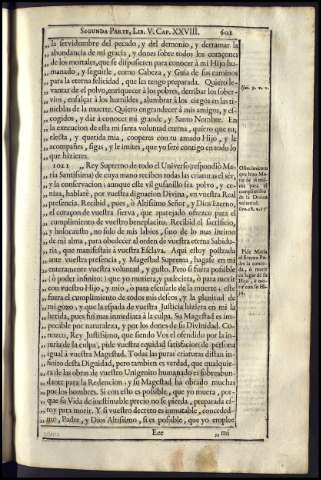 SEGUNDA PARTE, LIB. V. CAP. XXVIII. 601
„ la servidumbre del pecado, y del demonio, y derramar la
„ abundancia de mi gracia, y dones sobre todos los coraçones
„ de los mortales, que se dispusieren para conocer à mi Hijo hu-
„ manado, y seguirle, como Cabeza, y Guia de sus caminos
„ para la eterna felicidad, que les tengo preparada. Quiero le-
„ vantar de el polvo, enriquecer à los pobres, derribar los sober-
„ vios, ensalçar à los humildes, alumbrar à los ciegos en las ti-
„ nieblas de la muerte. Quiero engrandecer à mis amigos, y es-
„ cogidos, y dàr à conocer mi grande, y Santo Nombre. En
„ la execucion de esta mi santa voluntad eterna, quiero que tu,
„ electa, y querida mia, cooperes con tu amado Hijo, y le
„ acompañes, sigas, y le imites, que yo seré contigo en todo lo
„ que hizieres.
1021 „ Rey Supremo de todo el Universo (respondiò Ma-
ria Santissima) de cuya mano reciben todas las criaturas el sèr,
„ y la conservacion; aunque este vil gusanillo sea polvo, y ce-
„ niza, hablarè, por vuestra dignacion Divina, en vuestra Real
„ presencia. Recibid, pues, ò Altissimo Señor, y Dios Eterno,
„ el coraçon de vuestra sierva, que aparejado ofrezco para el
„ cumplimiento de vuestro beneplacito. Recibid el sacrificio,
„ y holocausto, no solo de mis labios, sino de lo mas intimo
„ de mi alma, para obedecer al orden de vuestra eterna Sabidu-
„ ria, que manifestais à vuestra Esclava. Aqui estoy postrada
„ ante vuestra presencia, y Magestad Suprema, hagase en mi
„ enteramente vuestra voluntad, y gusto. Pero si fuera possible
„ (ò poder infinito) que yo muriera, y padeciera, ò para morir
„ con vuestro Hijo, y mio, ò para escusarle de la muerte: este
„ fuera el cumplimiento de todos mis deseos, y la plenitud de
„ mi gozo, y que la espada de vuestra Justicia hiziera en mi la
„ herida, pues fui mas inmediata à la culpa. Su Magestad es im-
„ pecible por naturaleza, y por los dones de su Divinidad. Co-
„ nozco, Rey Justissimo, que siendo Vos el ofendido por la in-
„ juria de la culpa, pide vuestra equidad satisfacion de persona
„ igual à vuestra Magestad. Todas las puras criaturas distan in-
„ finito desta Dignidad, pero tambien es verdad, que qualquie-
„ ra de las obras de vuestro Unigenito humanado es sobreabun-
„ dante para la Redencion, y su Magestad ha obrado muchas
„ por los hombres. Si con esto es possible, que yo muera, por-
„ que su Vida de inestimable precio no se pierda, preparada es-
„ toy para morir. Y si vuestro decreto es inmutable, conceded-
„ me, Padre, y Dios Altissimo, si es possible, que yo emplee
Eee „ mi
Ofrecimiento
que hizo Ma-
ria de sì mis-
ma para el
cumplimiento
de la Divina
voluntad.
Pide Maria
al Eterno Pa-
dre la conce-
da, ò morir
en lugar de su
Hijo, ò mo-
rir con su Hi-
jo.